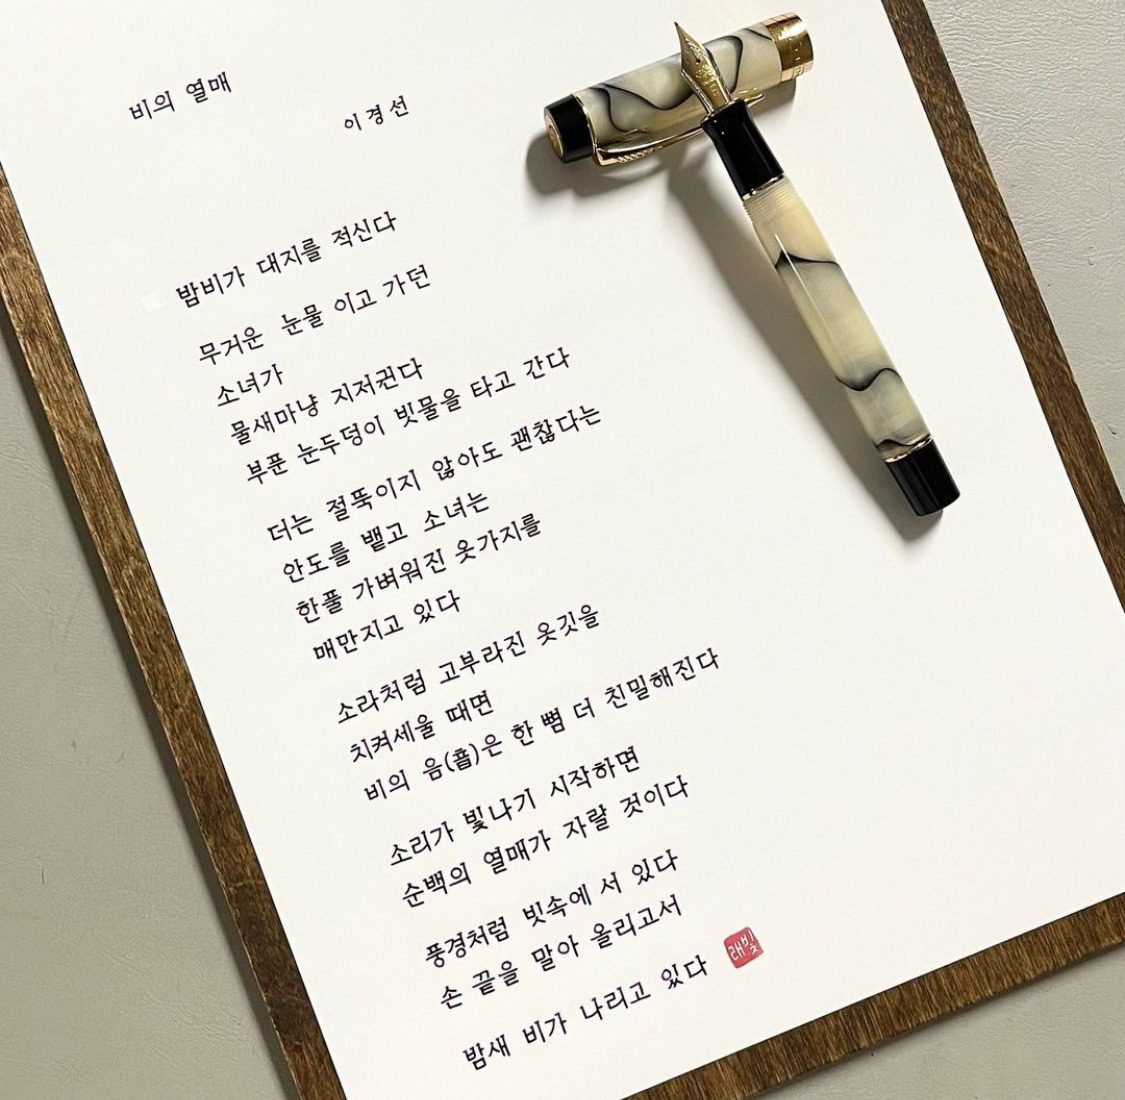 비의 열매
이경선
밤비가 대지를 적신다
무거운 눈물 이고 가던
소녀가
물새마냥 지저귄다
부푼 눈두덩이 빗물을 타고 간다
더는 절뚝이지 않아도 괜찮다는
안도를 뱉고 소녀는
한풀 가벼워진 옷가지를
매만지고 있다
소라처럼 고부라진 옷깃을
치켜세울 때면
비의 음(音)은 한 뼘 더 친밀해진다
소리가 빛나기 시작하면
순백의 열매가 자랄 것이다
풍경처럼 빗속에 서 있다
손 끝을 말아 올리고서
밤새 비가 나리고 있다
래빗